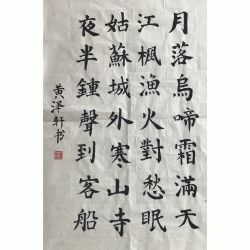 月落烏啼霜滿天
江楓漁火對愁眠
姑蘇城外寒山寺
夜半鍾聲到客船
黄泽轩书